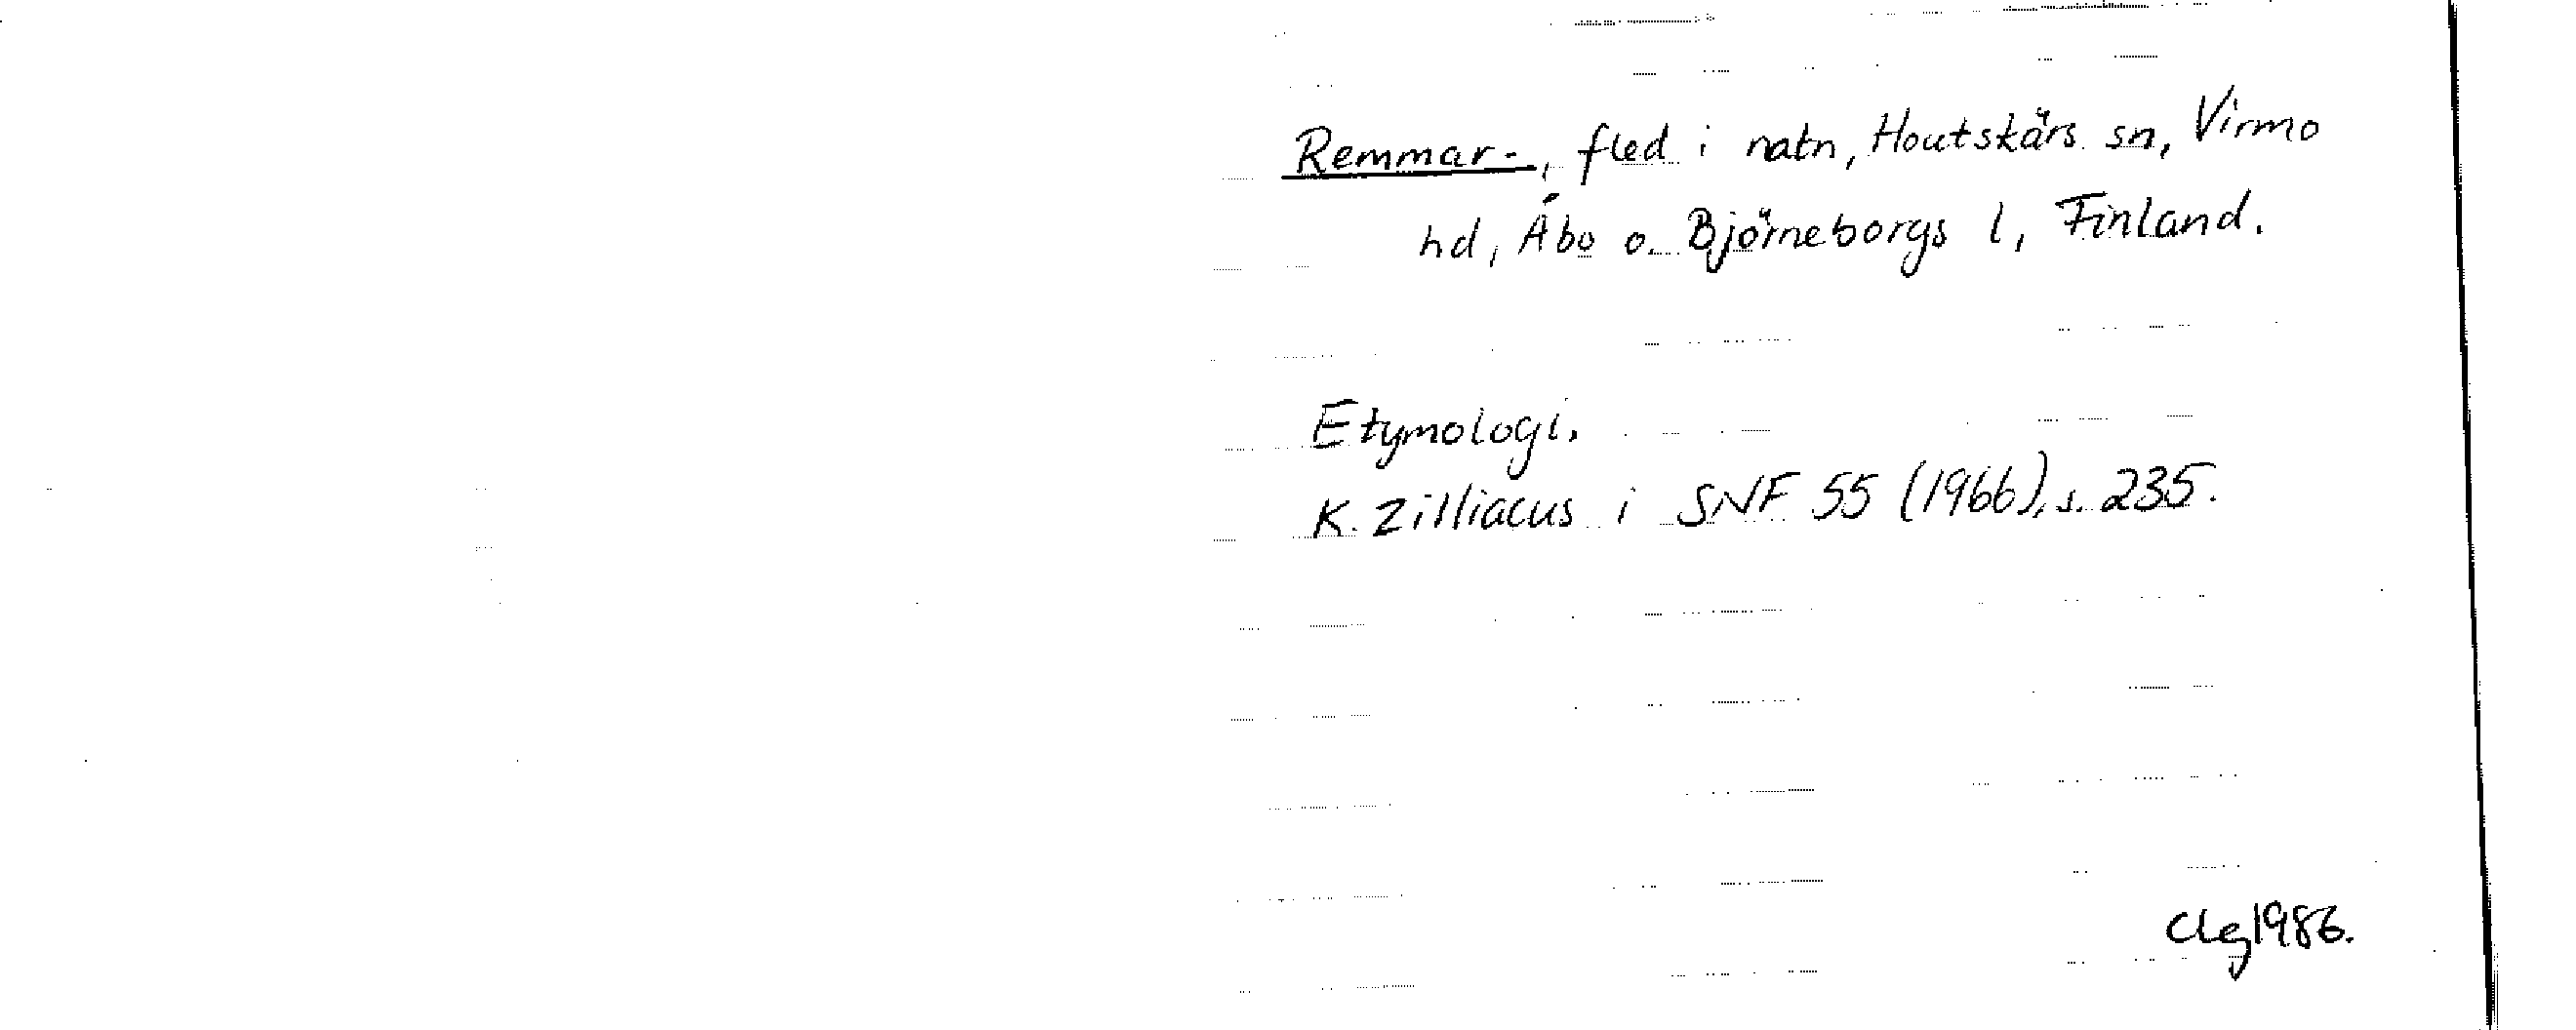 Remmar-, fled i natn, Houtskärs sn, Virmo
hd, Åbo o. Björneborgs l, Finland.
Etymologi.
K. Zilliacus i SNF 55 (1966), s. 235.
Clg 1986.